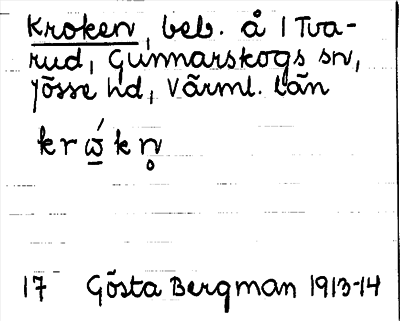 Kroken, beb. å 1 Tva-
rud, Gunnarskogs sn,
Jösse hd, Värml. län
k r ώ k n̥
17 Gösta Bergman 1913-14